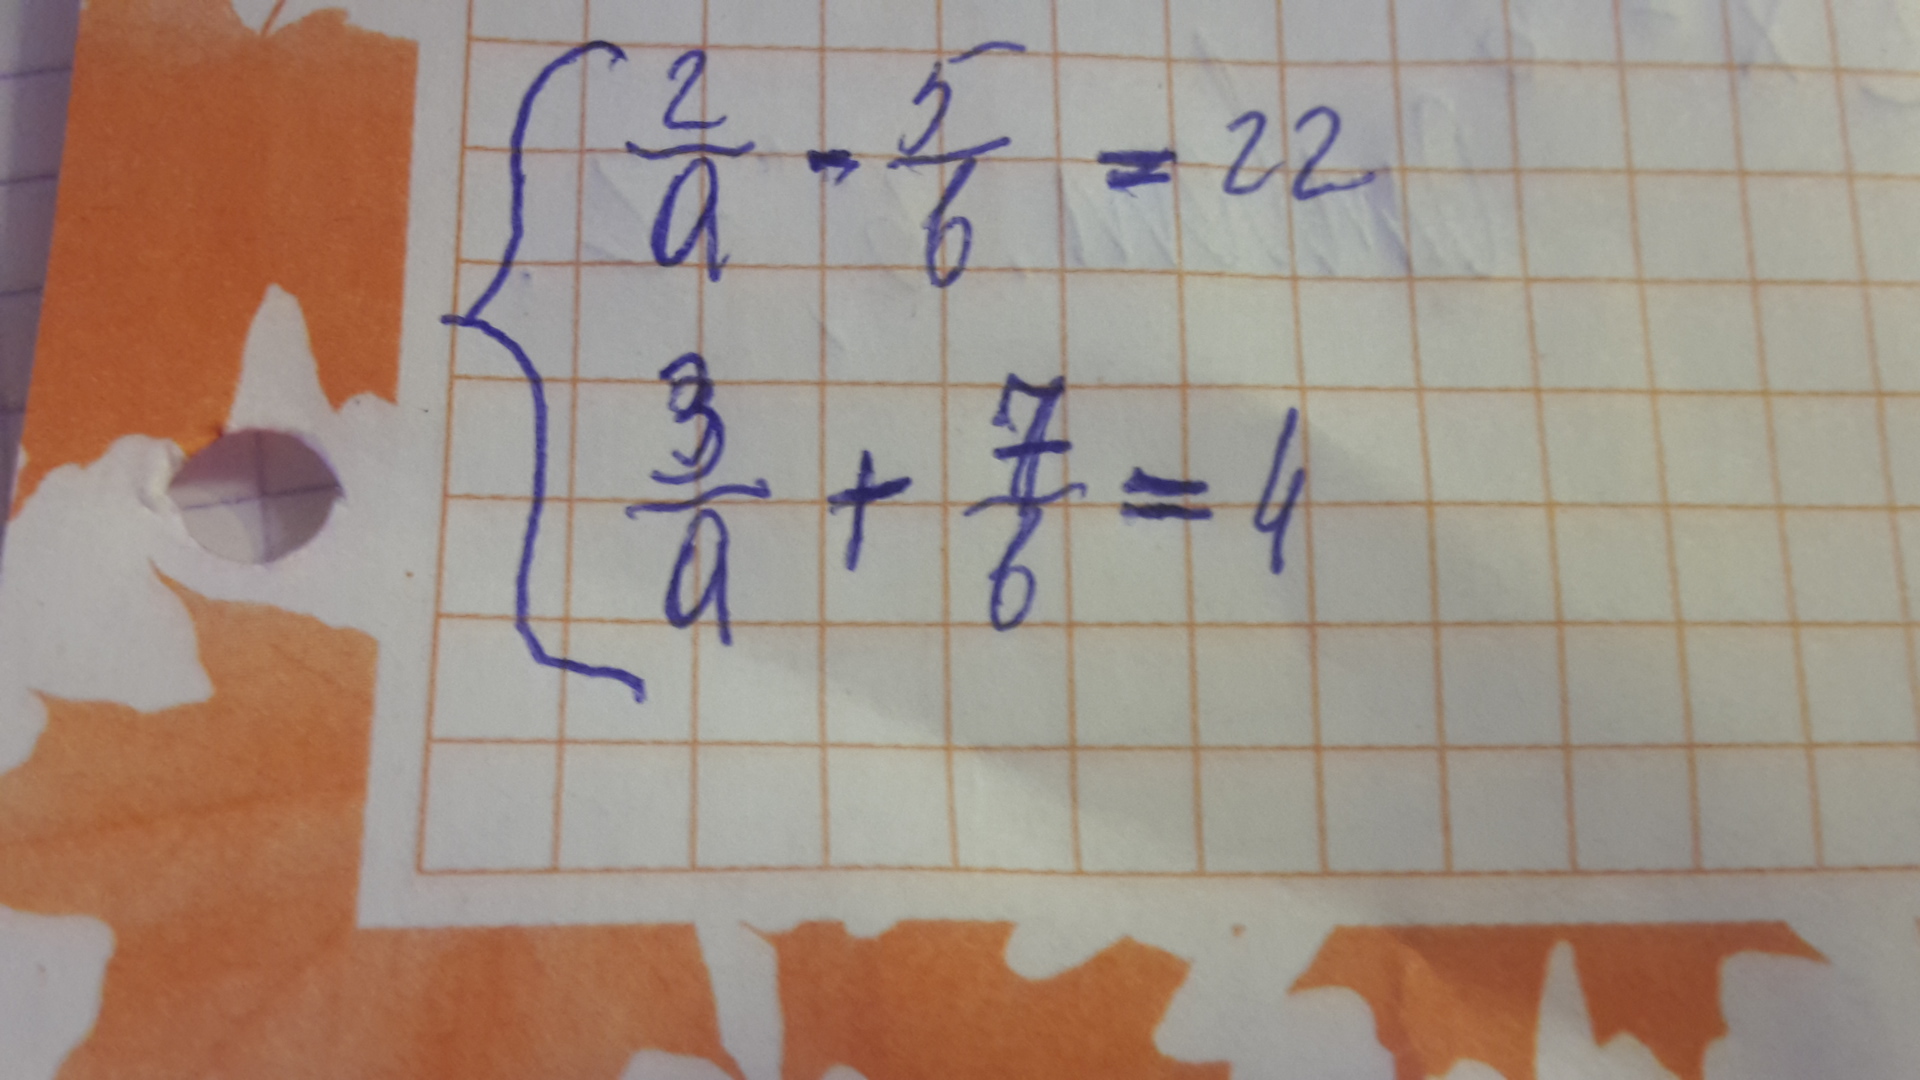 2/a - 5/b = 22
3/a + 7/b = 4